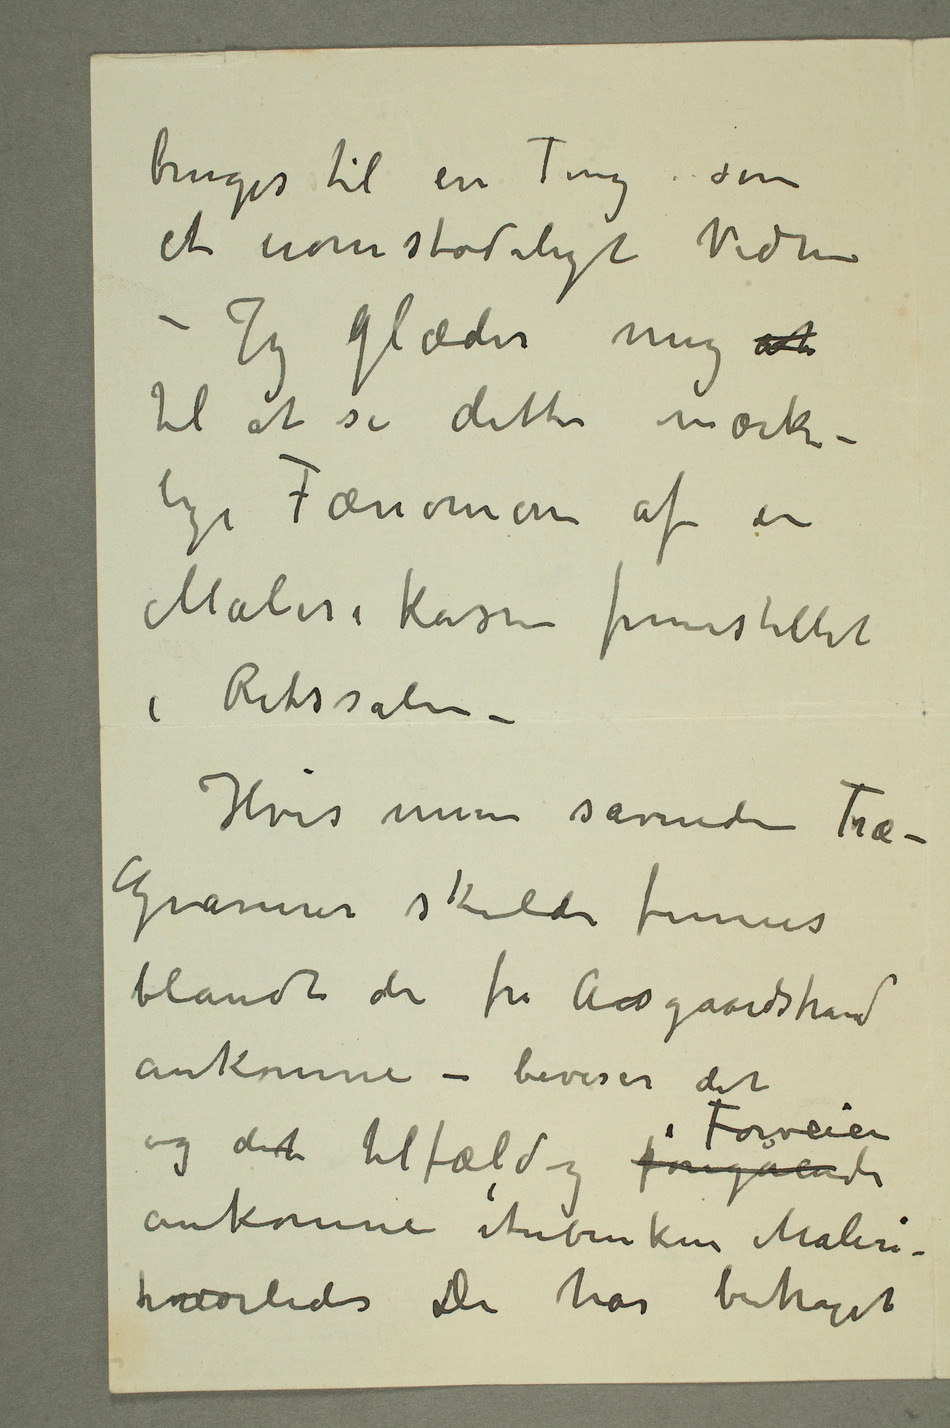 bruges til en Ting som
et uomstødeligt Vidne
– Jeg glæder mig at
til at se dette mærke-
lige Fænomen af en
Maleri Kasse fremstillet
i Retssalen –
Hvis mine savnede Træ-
Gravurer skulde finnes
blandt de fra Aasgaardstrand
ankomne – beviser det
i Forveien
og det tilfældig foregående
ankomne itubrukne Maleri-
hvorledes De har betraget